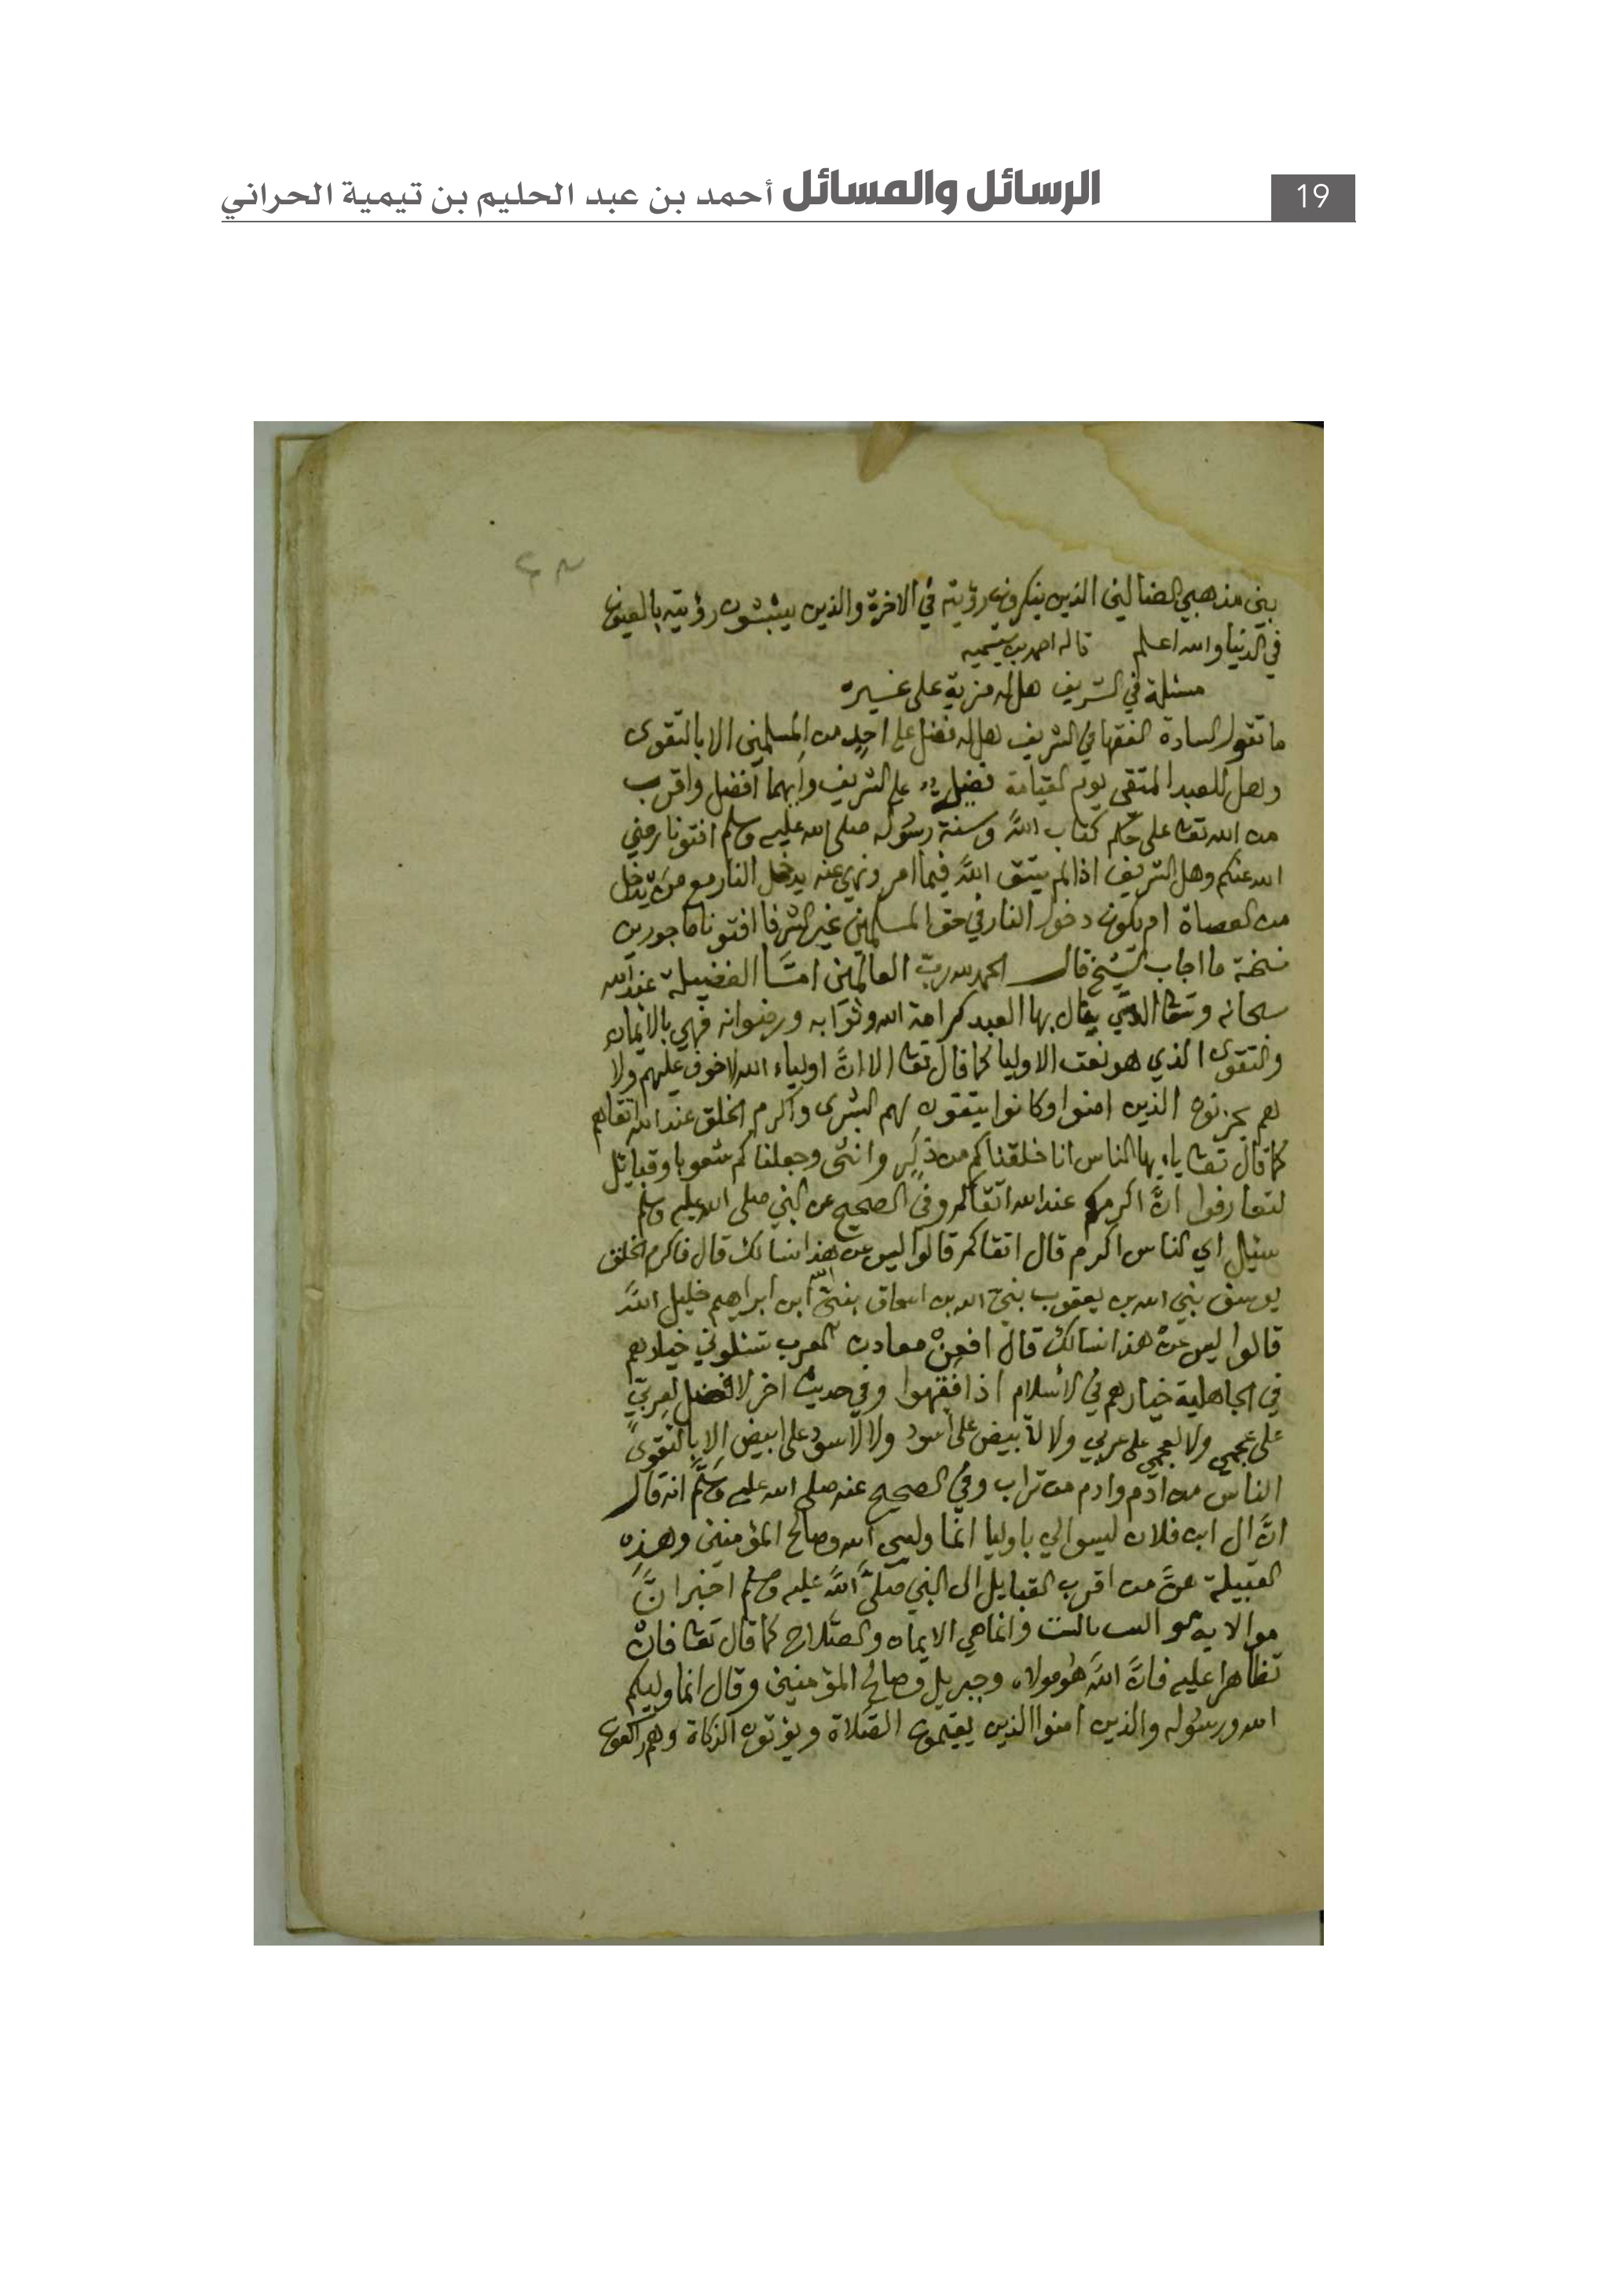 الرسائل والمسائل أحمد بن عبد الحليم بن تيمية الحراني 19
بين مذهبي الضالين الذين ينكرون رؤيته في الاخرة والذين يثبتون رؤيته بالعيون
في الدنيا والله اعلم قاله احمد بن تيميه
مسئلة في الشريف هل له مزية على غيره
ما تقول السادة الفقها في الشريف هل له فضل على احد من المسلمين الا بالتقوى
وهل للعبد المتقي يوم القيامة فضيلة على الشريف وايهما افضل واقرب
من الله تعا على حكم كتاب الله وسنة رسوله صلى الله عليه وسلم افتونا رضي
الله عنكم وهل الشريف اذا لم يتق الله فيما امر ونهي عنه يدخل النار مع من يدخل
من العصاة ام يكون دخول النار في حق المسلمين غير الشرفا افتونا ماجورين
نسخة ما اجاب الشيخ قال الحمد لله رب العالمين امّا الفضيلة عند الله
سبحانه وتعا التي ينال بها العبد كرامة الله وثوابه ورضوانه فهي بالايمان
والتقوى الذي هو نعت الاوليا كما قال تعا الا انّ اولياء الله لا خوف عليهم ولا
هم يحزنون الذين امنوا وكانوا يتقون لهم البشرى واكرم الخلق عند الله اتقاهم
كما قال تعا يا ايها الناس انا خلقناكم من ذكر وانثى وجعلناكم شعوبا وقبايل
لتعارفوا انّ اكرمكم عند الله اتقاكم وفي الصحيح عن النبي صلى الله عليه وسلم
سئل اي الناس اكرم قال اتقاكم قالوا ليس عن هذا نسالك قال فاكرم الخلق
يوسف نبي الله بن يعقوب نبي الله بن اسحاق نبي الله ابن ابراهيم خليل الله
قالوا ليس عن هذا نسالك قال افعن معادن العرب تسئلوني خيارهم
في الجاهلية خيارهم في الاسلام اذا فقهوا وفي حديث اخر لا فضل لعربيّ
على عجمي ولا لعجمي على عربي ولا لابيض على اسود ولا لاسود على ابيض الا بالتقوى
الناس من ادم وادم من تراب وفي الصحيح عنه صلى الله عليه وسلم انه قال
انّ ال ابي فلان ليسوا لي باوليا انما وليي الله وصالح المؤمنين وهذه
القبيلة من اقرب القبايل الى النبي صلى الله عليه وسلم اخبر انّ
موالاته وانما هي الايمان والصلاح كما قال تعا فان
تظاهرا عليه فانّ الله هو مولاه وجبريل وصالح المؤمنين وقال انما وليكم
الله ورسوله والذين امنوا الذين يقيمون الصلاة ويؤتون الزكاة وهم راكعون